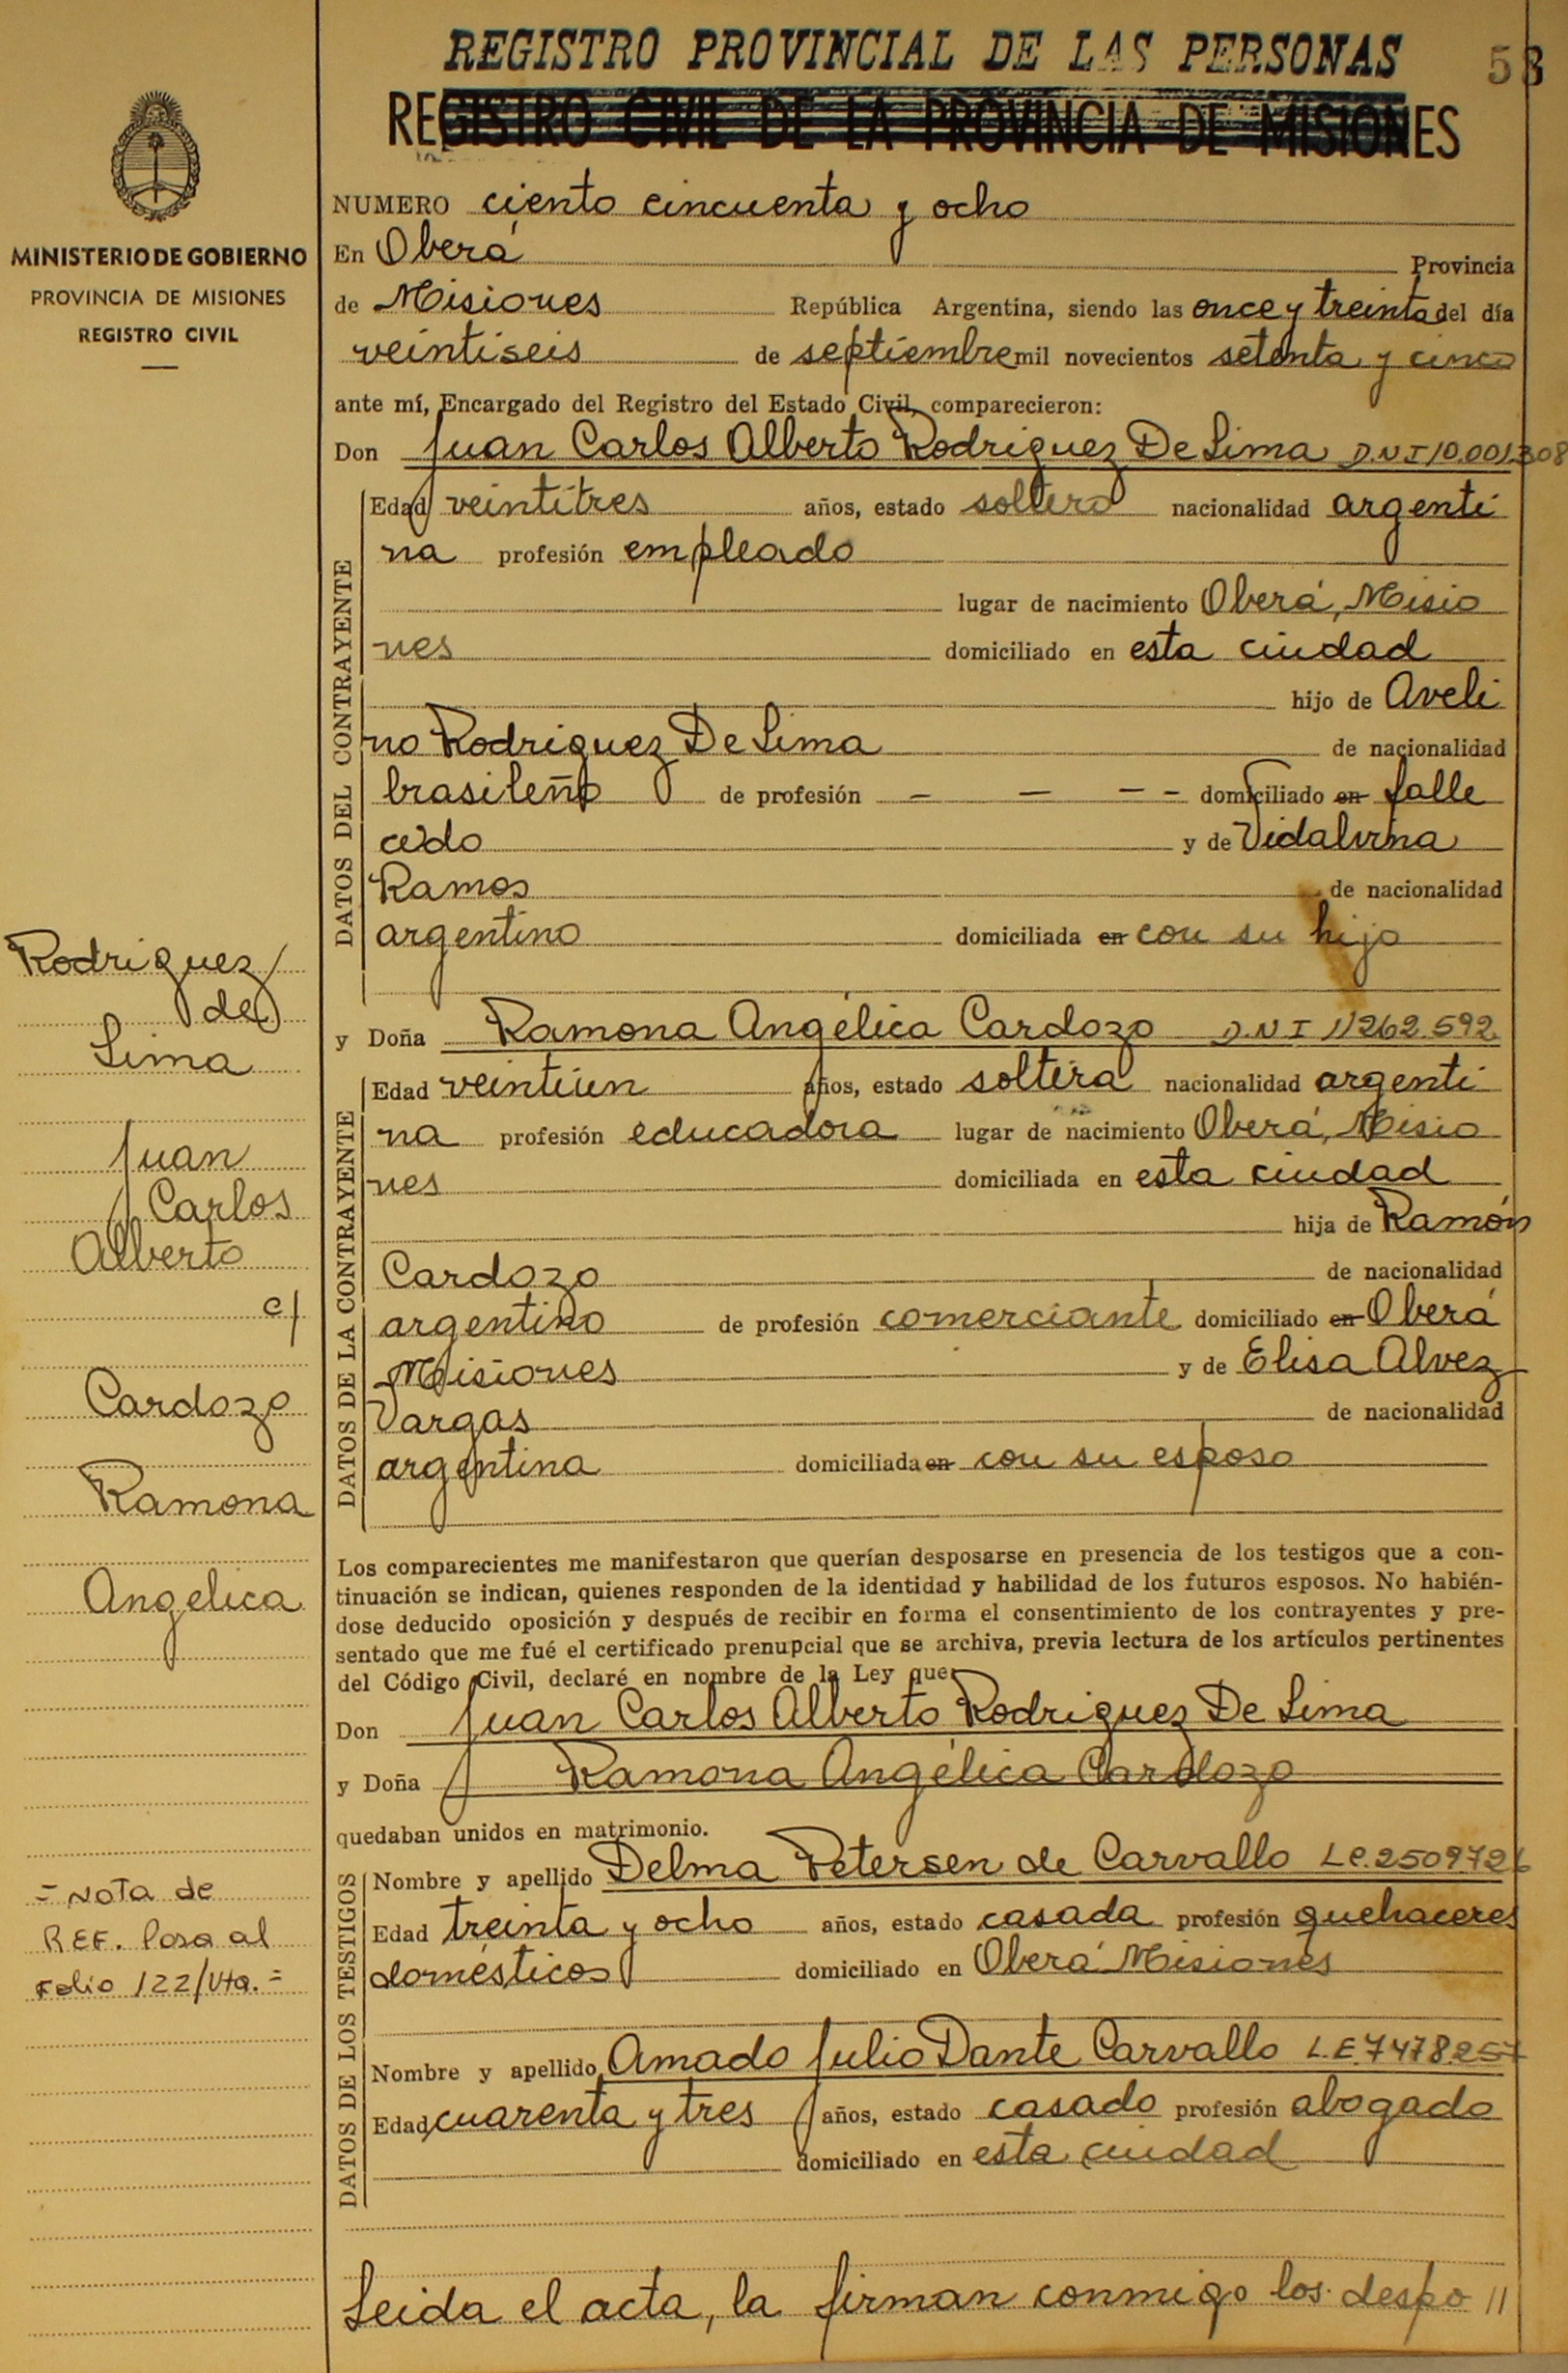 REGISTRO PROVINCIAL DE LAS PERSONAS
58
REGISTRO CIVIL DE LA PROVINCIA DE MISIONES
MINISTERIO DE GOBIERNO
PROVINCIA DE MISIONES
REGISTRO CIVIL
NUMERO ciento cincuenta y ocho
En Oberá Provincia
de Misiones República Argentina, siendo las once y treinta del día
veintiseis de septiembre mil novecientos setenta y cinco
ante mí, Encargado del Registro del Estado Civil, comparecieron:
Don Juan Carlos Alberto Rodriguez De Lima D.N.I 10.001.308
DATOS DEL CONTRAYENTE
Edad veintitres años, estado soltero nacionalidad argenti
na profesión empleado
lugar de nacimiento Oberá, Misio
nes domiciliado en esta ciudad
hijo de Aveli
no Rodriguez De Lima de nacionalidad
brasileño de profesión - - - - domiciliado en falle
cido y de Vidalvina
Ramos de nacionalidad
argentino domiciliada en con su hijo
y Doña Ramona Angélica Cardozo D.N.I 11262.592
DATOS DE LA CONTRAYENTE
Edad veintiún años, estado soltera nacionalidad argenti
na profesión educadora lugar de nacimiento Oberá, Misio
nes domiciliada en esta ciudad
hija de Ramón
Cardozo de nacionalidad
argentino de profesión comerciante domiciliado en Oberá
Misiones y de Elisa Alvez
Vargas de nacionalidad
argentina domiciliada en con su esposo
Los comparecientes me manifestaron que querían desposarse en presencia de los testigos que a con-
tinuación se indican, quienes responden de la identidad y habilidad de los futuros esposos. No habién-
dose deducido oposición y después de recibir en forma el consentimiento de los contrayentes y pre-
sentado que me fué el certificado prenupcial que se archiva, previa lectura de los artículos pertinentes
del Código Civil, declaré en nombre de la Ley que
Don Juan Carlos Alberto Rodriguez De Lima
y Doña Ramona Angélica Cardozo
quedaban unidos en matrimonio.
DATOS DE LOS TESTIGOS
Nombre y apellido Delma Petersen de Carvallo L.C.2509726
Edad treinta y ocho años, estado casada profesión quehaceres
domésticos domiciliado en Oberá Misiones
Nombre y apellido Amado Julio Dante Carvallo L.E.7478.257
Edad cuarenta y tres años, estado casado profesión abogado
domiciliado en esta ciudad
Leida el acta, la firman conmigo los despo //
Rodriguez
de
Lima
Juan
Carlos
Alberto
c/
Cardozo
Ramona
Angelica
= Nota de
REF. Pasa al
Folio 122/Vta. =